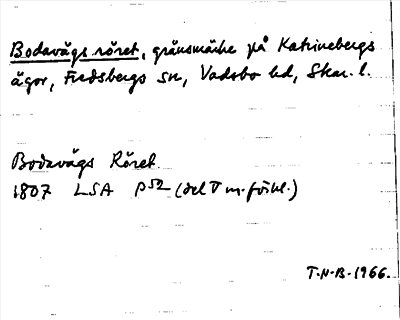 Bodavägs röret, gränsmärke på Katrinebergs
ägor, Fredsbergs sn, Vadsbo hd, Skar. l.
Bodavägs Röret
1807 LSA P52 (del V m. förkl.)
T.H.B. 1966.